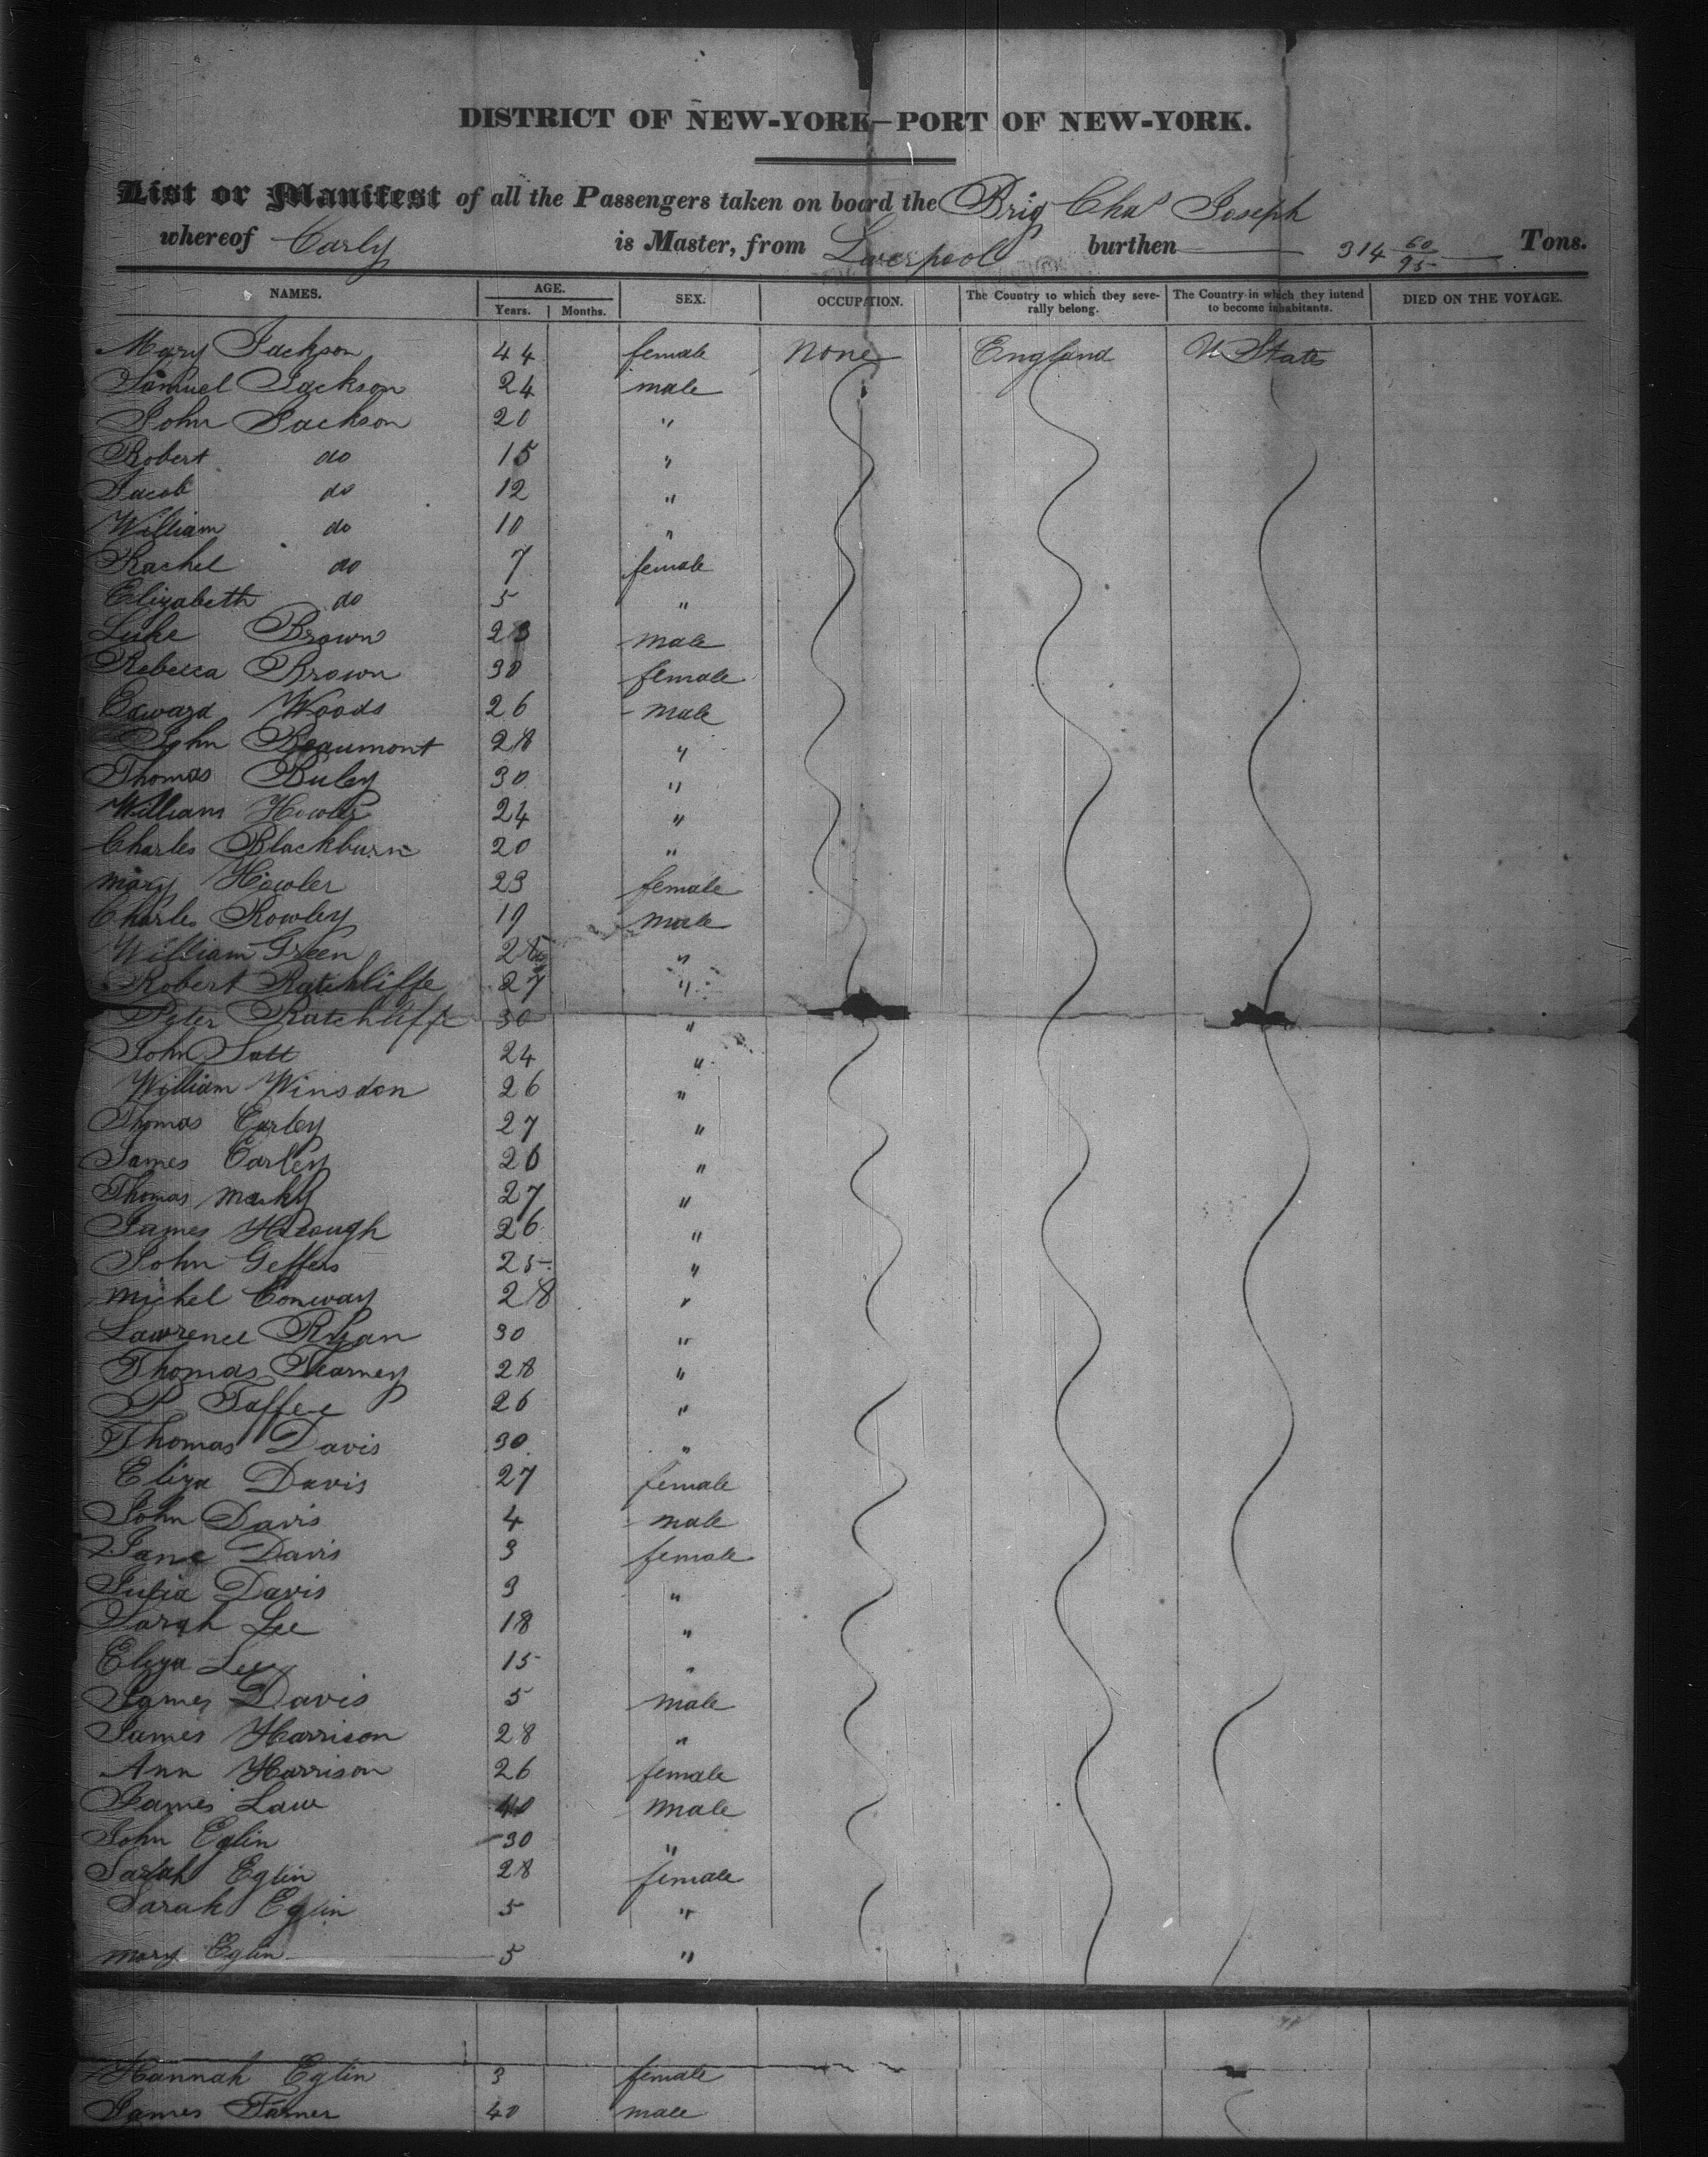 DISTRICT OF NEW-YORK—PORT OF NEW-YORK.
List or Manifest of all the Passengers taken on board the Brig Chas Joseph
whereof Carly is Master, from Liverpool burthen 314 60/95 Tons.
NAMES. AGE. SEX. OCCUPATION. The Country to which they seve- The Country in which they intend DIED ON THE VOYAGE.
Years. Months. rally belong. to become inhabitants.
Mary Jackson 44 female none England U States
Samuel Jackson 24 male
John Jackson 20 "
Robert do 15 "
Jacob do 12 "
William do 10 "
Rachel do 7 female
Elizabeth do 5 "
Luke Brown 23 male
Rebecca Brown 30 female
Edward Woods 26 male
John Beaumont 28 "
Thomas Buley 30 "
William Howler 24 "
Charles Blackburn 20 "
Mary Howler 23 female
Charles Rowley 19 male
William Green "
Robert Ratchliffe 27 "
Peter Ratchliffe 30 "
John 24 "
William Winsdon 26 "
Thomas Carley 27 "
James Carley 26 "
Thomas 27 "
James 26 "
John Geffers 25 "
Michel Conway 28 "
Lawrence Ryan 30 "
Thomas 28 "
P Taffee 26 "
Thomas Davis 30 "
Eliza Davis 27 female
John Davis 4 male
Jane Davis 3 female
Julia Davis 3 "
Sarah Lee 18 "
Eliza Lee 15 "
James Davis 5 male
James Harrison 28 "
Ann Harrison 26 female
James Law 40 male
John Eglin 30 "
Sarah Eglin 28 female
Sarah Eglin 5 "
Mary Eglin 5 "
Hannah Eglin 3 female
James Tarner 40 male